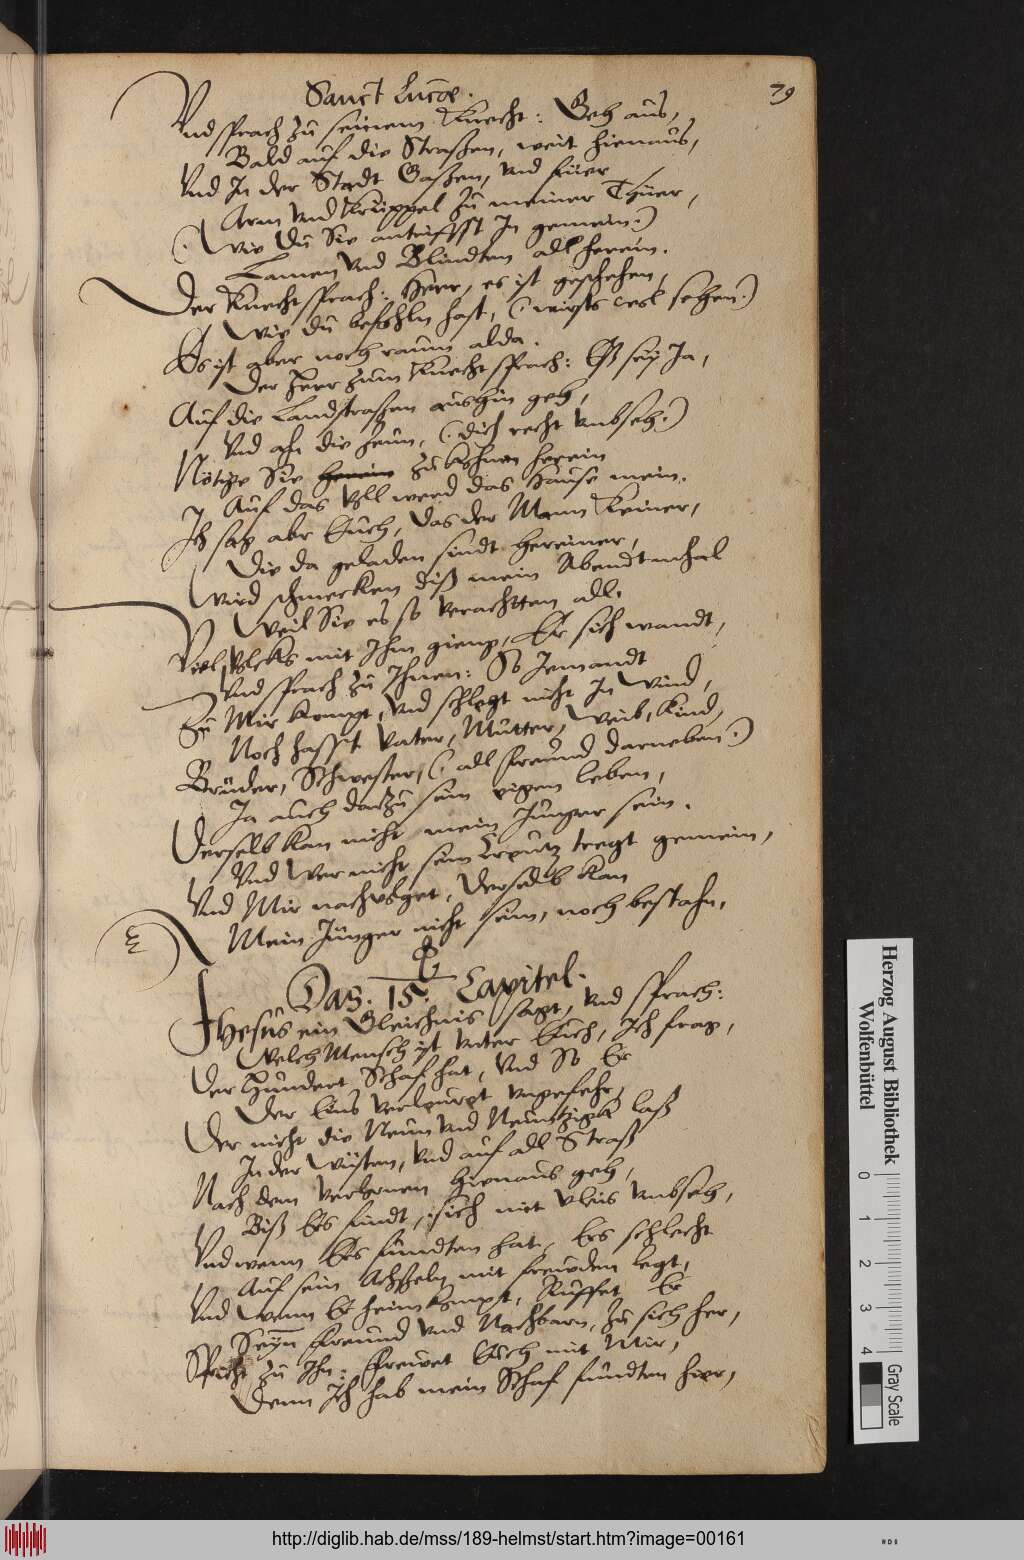 Sanct Lucæ.
79
Vnd sprach zu seinem Knecht: Geh aus,
Bald auf die Straßen, weit hienaus,
Vnd In der Stadt Gaßen, vnd füer
Arm vnd Krüppel zu meiner Thüer,
(: Wie du Sie antriffst In gemein:)
Lamen vnd Blindten all herein.
Der Knecht sprach: Herr, es ist geschehen,
Wie du befohln hast, (: wirsts sehen:)
Es ist aber noch raum alda.
Der Herr zum Knecht sprach: Es sey Ja,
Auf die Landstraßen aushin geh,
Vnd ahn die zeün, (: dich recht vmbseh:)
Nötige Sie herein zu kohmen herein
Auf das voll werd das Hause mein.
Ich sag abr Euch, das der Mann Keiner,
Die da geladen sindt hereiner,
Wird schmecken diß mein Abendtmahal
Weil Sie es so verachtten all.
Viel volcks mit Ihm gieng, Er sich wandt,
Vnd sprach zu Ihnen: So Jemandt
Zu Mir kompt, vnd schlegt nicht In Wind,
Noch hasst Vater, Mutter, Weib, Kind,
Brüder, Schwester, (: all freund darneben:)
Ja auch darzu sein eigen leben,
Derselb kan nicht mein Jünger sein.
Vnd Wer nicht sein Creutz tregt gemein,
Vnd Mir nachvolget, Derselb kan
Mein Jünger nicht sein, noch bestahn,
Das. 15. Capitel.
JHesus ein Gleichnis sagt, vnd sprach:
Welch Mensch ist vnter Euch, Ich frag,
Der Hundert Schaf hat, vnd So Er
Der Eins verleurgt vngefehr,
Der nicht die Neün vnd Neuntzigk laß
In der Wüsten, vnd auf all Straß
Nach dem verlornen hienaus geh,
Biß Ers findt, sich mit vleis vmbseh,
Vnd wenn Ers fundten hat, Ers schlecht
Auf sein Achßeln mit freuden legt,
Vnd Wenn Er heim kompt, Ruffet Er
Seyn Freund vnd Nachbarn, zu sich her,
Spricht zu Ihn: Frewet Euch mit Mir,
Denn Ich hab mein Schaf fundten hier,
Herzog August Bibliothek
Wolfenbüttel
0 1 2 3 4
Gray Scale
http://diglib.hab.de/mss/189-helmst/start.htm?image=00161